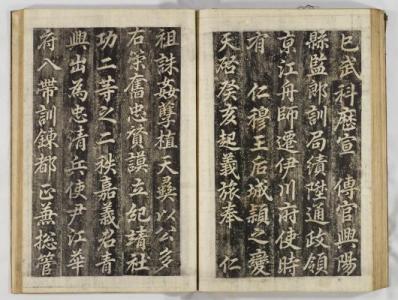 巳武科歷宣傳官興陽
縣監郎訓局績陞通政領
京江舟師遷伊川府使時
有仁穆王后城潁之變
天啓癸亥起義旅奉仁
祖誅姦孽植天彝以公多
右宗奮忠贊謨立紀靖社
功二等之二秩嘉義名青
興出為忠清兵使尹江華
府入帶訓鍊都正兼摠管